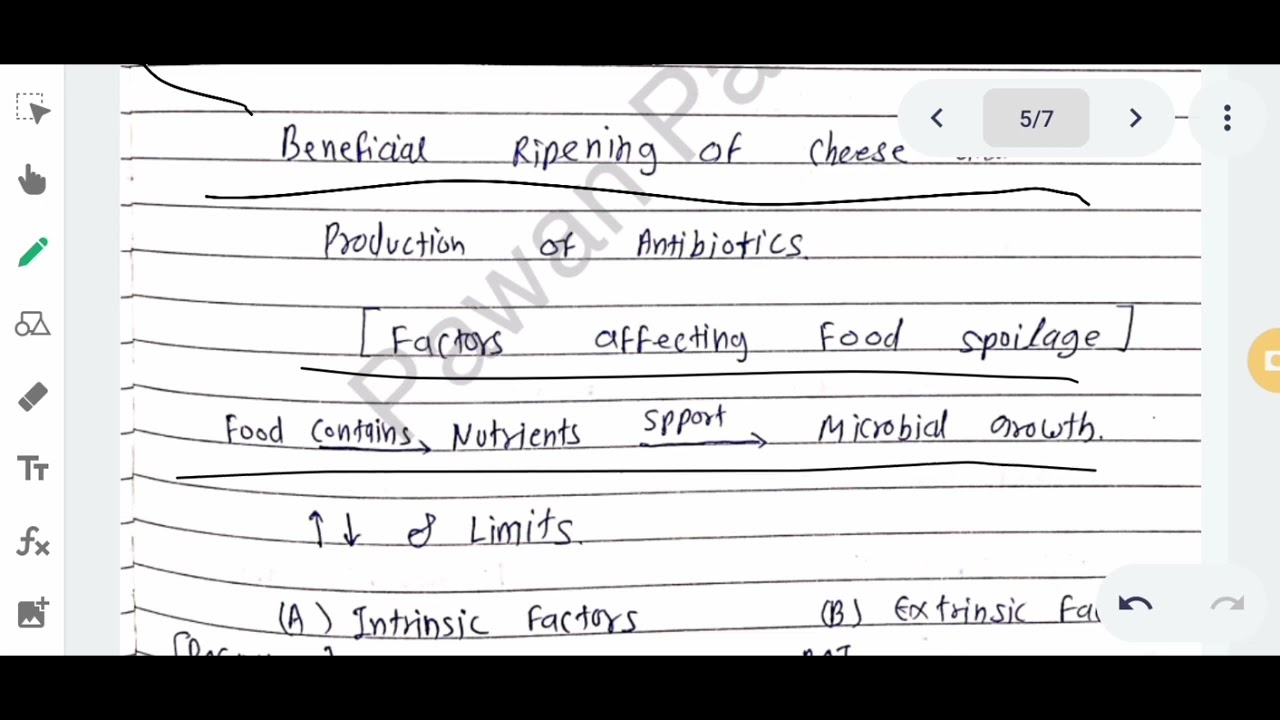 5/7
Beneficial Ripening of cheese
Production of Antibiotics.
[Factors affecting Food spoilage]
Food contains Nutrients spport Microbial Growth.
↑↓ & Limits.
(A) Intrinsic Factors (B) Extrinsic Fa
Pawan Pa
Tт
fx